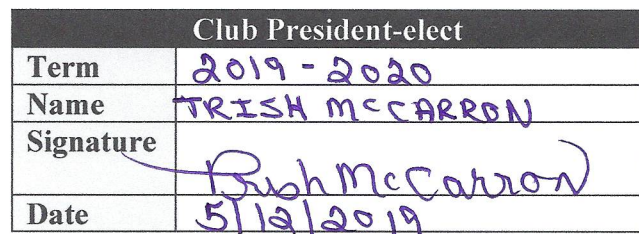 Club President-elect
Term 2019-2020
Name TRISH MCCARRON
Signature Trish McCarron
Date 5/12/2019